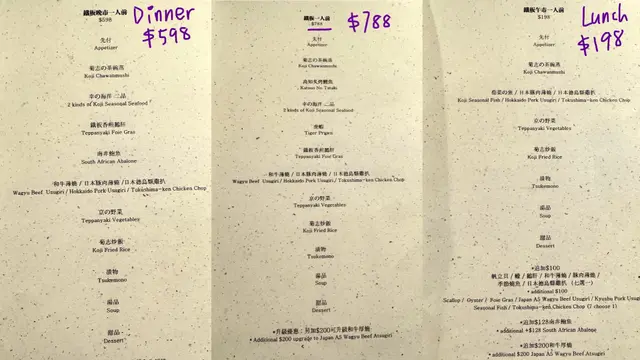 鐵板晚市一人前
$598
Dinner
$598
先付
Appetizer
菊志の茶碗蒸
Koji Chawanmushi
幸の海洋 二品
2 kinds of Koji Seasonal Seafood
鐵板香煎鵝肝
Teppanyaki Foie Gras
南非鮑魚
South African Abalone
和牛薄燒 / 日本豚肉薄燒 / 日本德島縣雞扒
Wagyu Beef Usugiri / Hokkaido Pork Usugiri / Tokushima-ken Chicken Chop
京の野菜
Teppanyaki Vegetables
菊志炒飯
Koji Fried Rice
漬物
Tsukemono
湯品
Soup
甜品
Dessert
鐵板一人前
$788
$788
先付
Appetizer
菊志の茶碗蒸
Koji Chawanmushi
高知炙烤鰹魚
Katsuo No Tataki
幸の海洋 二品
2 kinds of Koji Seasonal Seafood
虎蝦
Tiger Prawn
鐵板香煎鵝肝
Teppanyaki Foie Gras
和牛薄燒 / 日本豚肉薄燒 / 日本德島縣雞扒
Wagyu Beef Usugiri / Hokkaido Pork Usugiri / Tokushima-ken Chicken Chop
京の野菜
Teppanyaki Vegetables
菊志炒飯
Koji Fried Rice
漬物
Tsukemono
湯品
Soup
甜品
Dessert
*升級優惠：另加$200可升級和牛厚燒
* Additional $200 upgrade to Japan A5 Wagyu Beef Atsugiri
鐵板午市一人前
$198
Lunch
$198
先付
Appetizer
菊志の茶碗蒸
Koji Chawanmushi
季節の魚 / 日本豚肉薄燒 / 日本德島縣雞扒
Koji Seasonal Fish / Hokkaido Pork Usugiri / Tokushima-ken Chicken Chop
京の野菜
Teppanyaki Vegetables
菊志炒飯
Koji Fried Rice
漬物
Tsukemono
湯品
Soup
甜品
Dessert
*追加$100
帆立貝 / 蠔 / 鵝肝 / 和牛薄燒 / 豚肉薄燒 /
季節燒魚 / 日本德島縣雞扒 (七選一)
* additional $100
Scallop / Oyster / Foie Gras / Japan A5 Wagyu Beef Usugiri / Kyushu Pork Usugiri
Seasonal Fish / Tokushima-ken Chicken Chop (7 choose 1)
*追加$128南非鮑魚
* additional +$128 South African Abalone
*追加$200和牛厚燒
* Additional $200 Japan A5 Wagyu Beef Atsugiri